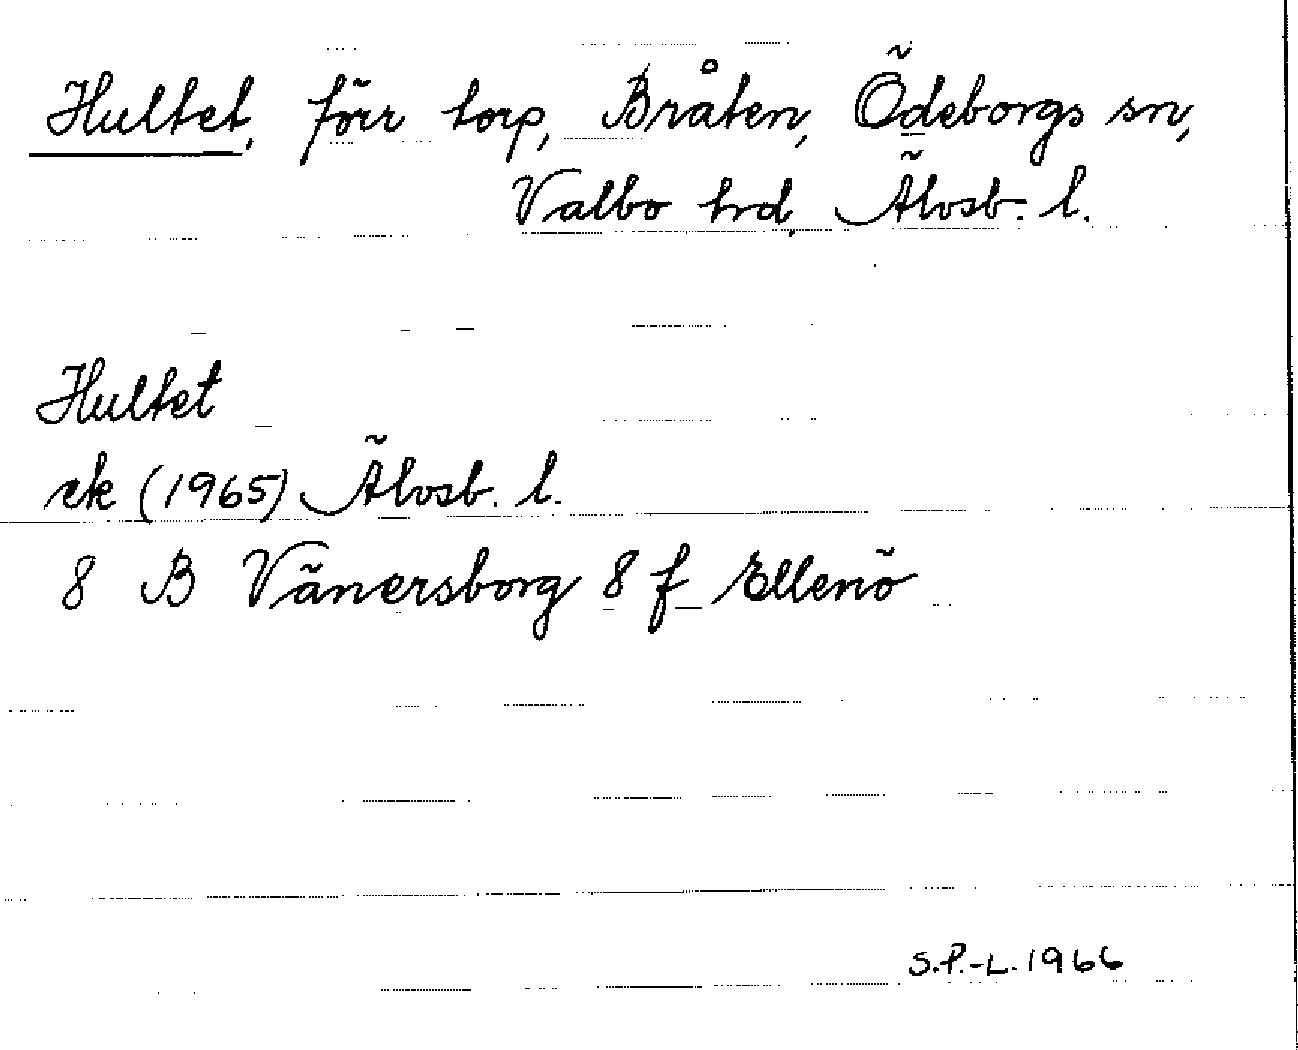 Hultet, förr torp, Bråten, Ödeborgs sn,
Valbo hrd, Älvsb. l.
Hultet
ek (1965) Älvsb. l.
8 B Vänersborg 8 f Ellenö
S.P.-L. 1966